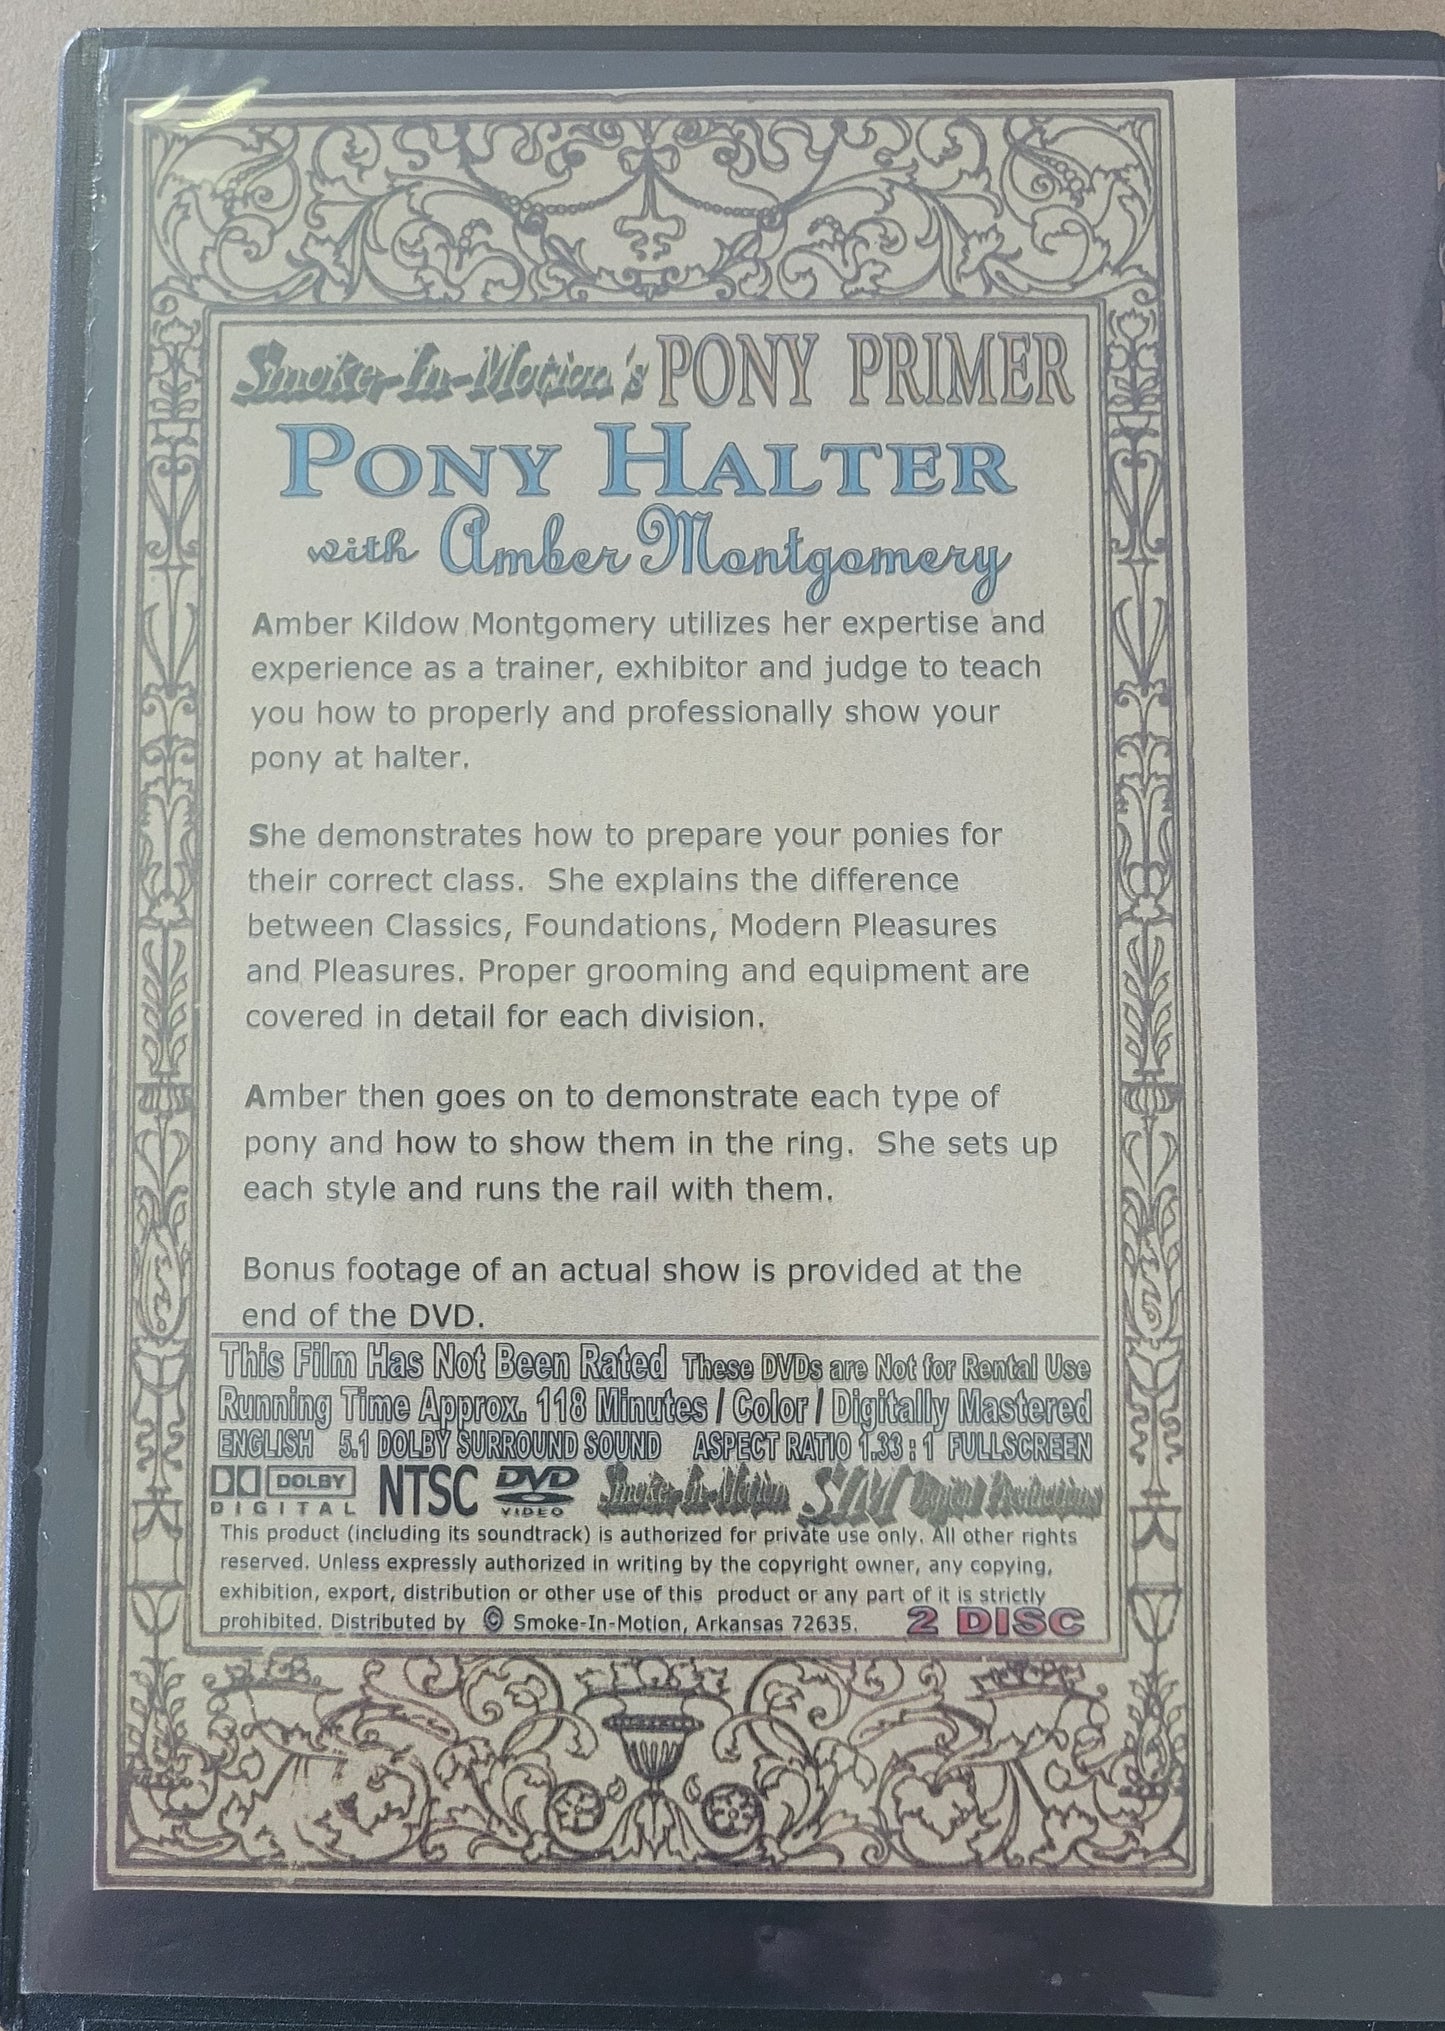 Smoke-In-Motion's PONY PRIMER
PONY HALTER
with Amber Montgomery
Amber Kildow Montgomery utilizes her expertise and
experience as a trainer, exhibitor and judge to teach
you how to properly and professionally show your
pony at halter.
She demonstrates how to prepare your ponies for
their correct class.  She explains the difference
between Classics, Foundations, Modern Pleasures
and Pleasures. Proper grooming and equipment are
covered in detail for each division.
Amber then goes on to demonstrate each type of
pony and how to show them in the ring.  She sets up
each style and runs the rail with them.
Bonus footage of an actual show is provided at the
end of the DVD.
This Film Has Not Been Rated These DVDs are Not for Rental Use
Running Time Approx. 118 Minutes / Color / Digitally Mastered
ENGLISH 5.1 DOLBY SURROUND SOUND ASPECT RATIO 1.33 : 1 FULLSCREEN
DOLBY DIGITAL NTSC DVD VIDEO Smoke-In-Motion SIM Digital Productions
This product (including its soundtrack) is authorized for private use only. All other rights
reserved. Unless expressly authorized in writing by the copyright owner, any copying,
exhibition, export, distribution or other use of this  product or any part of it is strictly
prohibited. Distributed by © Smoke-In-Motion, Arkansas 72635. 2 DISC